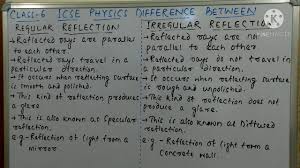 CLASS-6 ICSE PHYSICS DIFFERENCE BETWEEN
REGULAR REFLECTION
→ Reflected rays are parallel
to each other.
→ Reflected rays travel in a
particular direction.
→ It occurs when reflecting surface
is smooth and polished.
→ This kind of reflection produces
a glare
→ This is also known as Specular
reflection.
e.g - Reflection of light from a
mirror.
IRREGULAR REFLECTION
→ Reflected rays are non
parallel to each other.
→ Reflected rays do not travel in
a particular direction.
→ It occurs when reflecting surface
is rough and unpolished.
→ This kind of reflection does not
produce a glare.
→ This is also known as Diffused
reflection.
e.g - Reflection of light from a
Concrete wall.